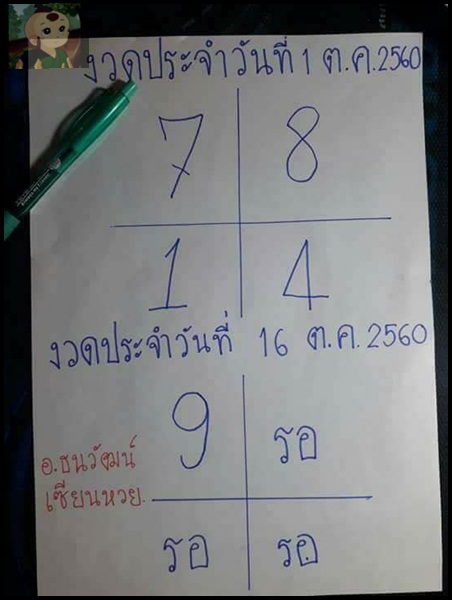 งวดประจำวันที่ 1 ต.ค.2560
7 8
1 4
งวดประจำวันที่ 16 ต.ค.2560
9 รอ
อ.ธนวัฒน์
เซียนหวย.
รอ รอ